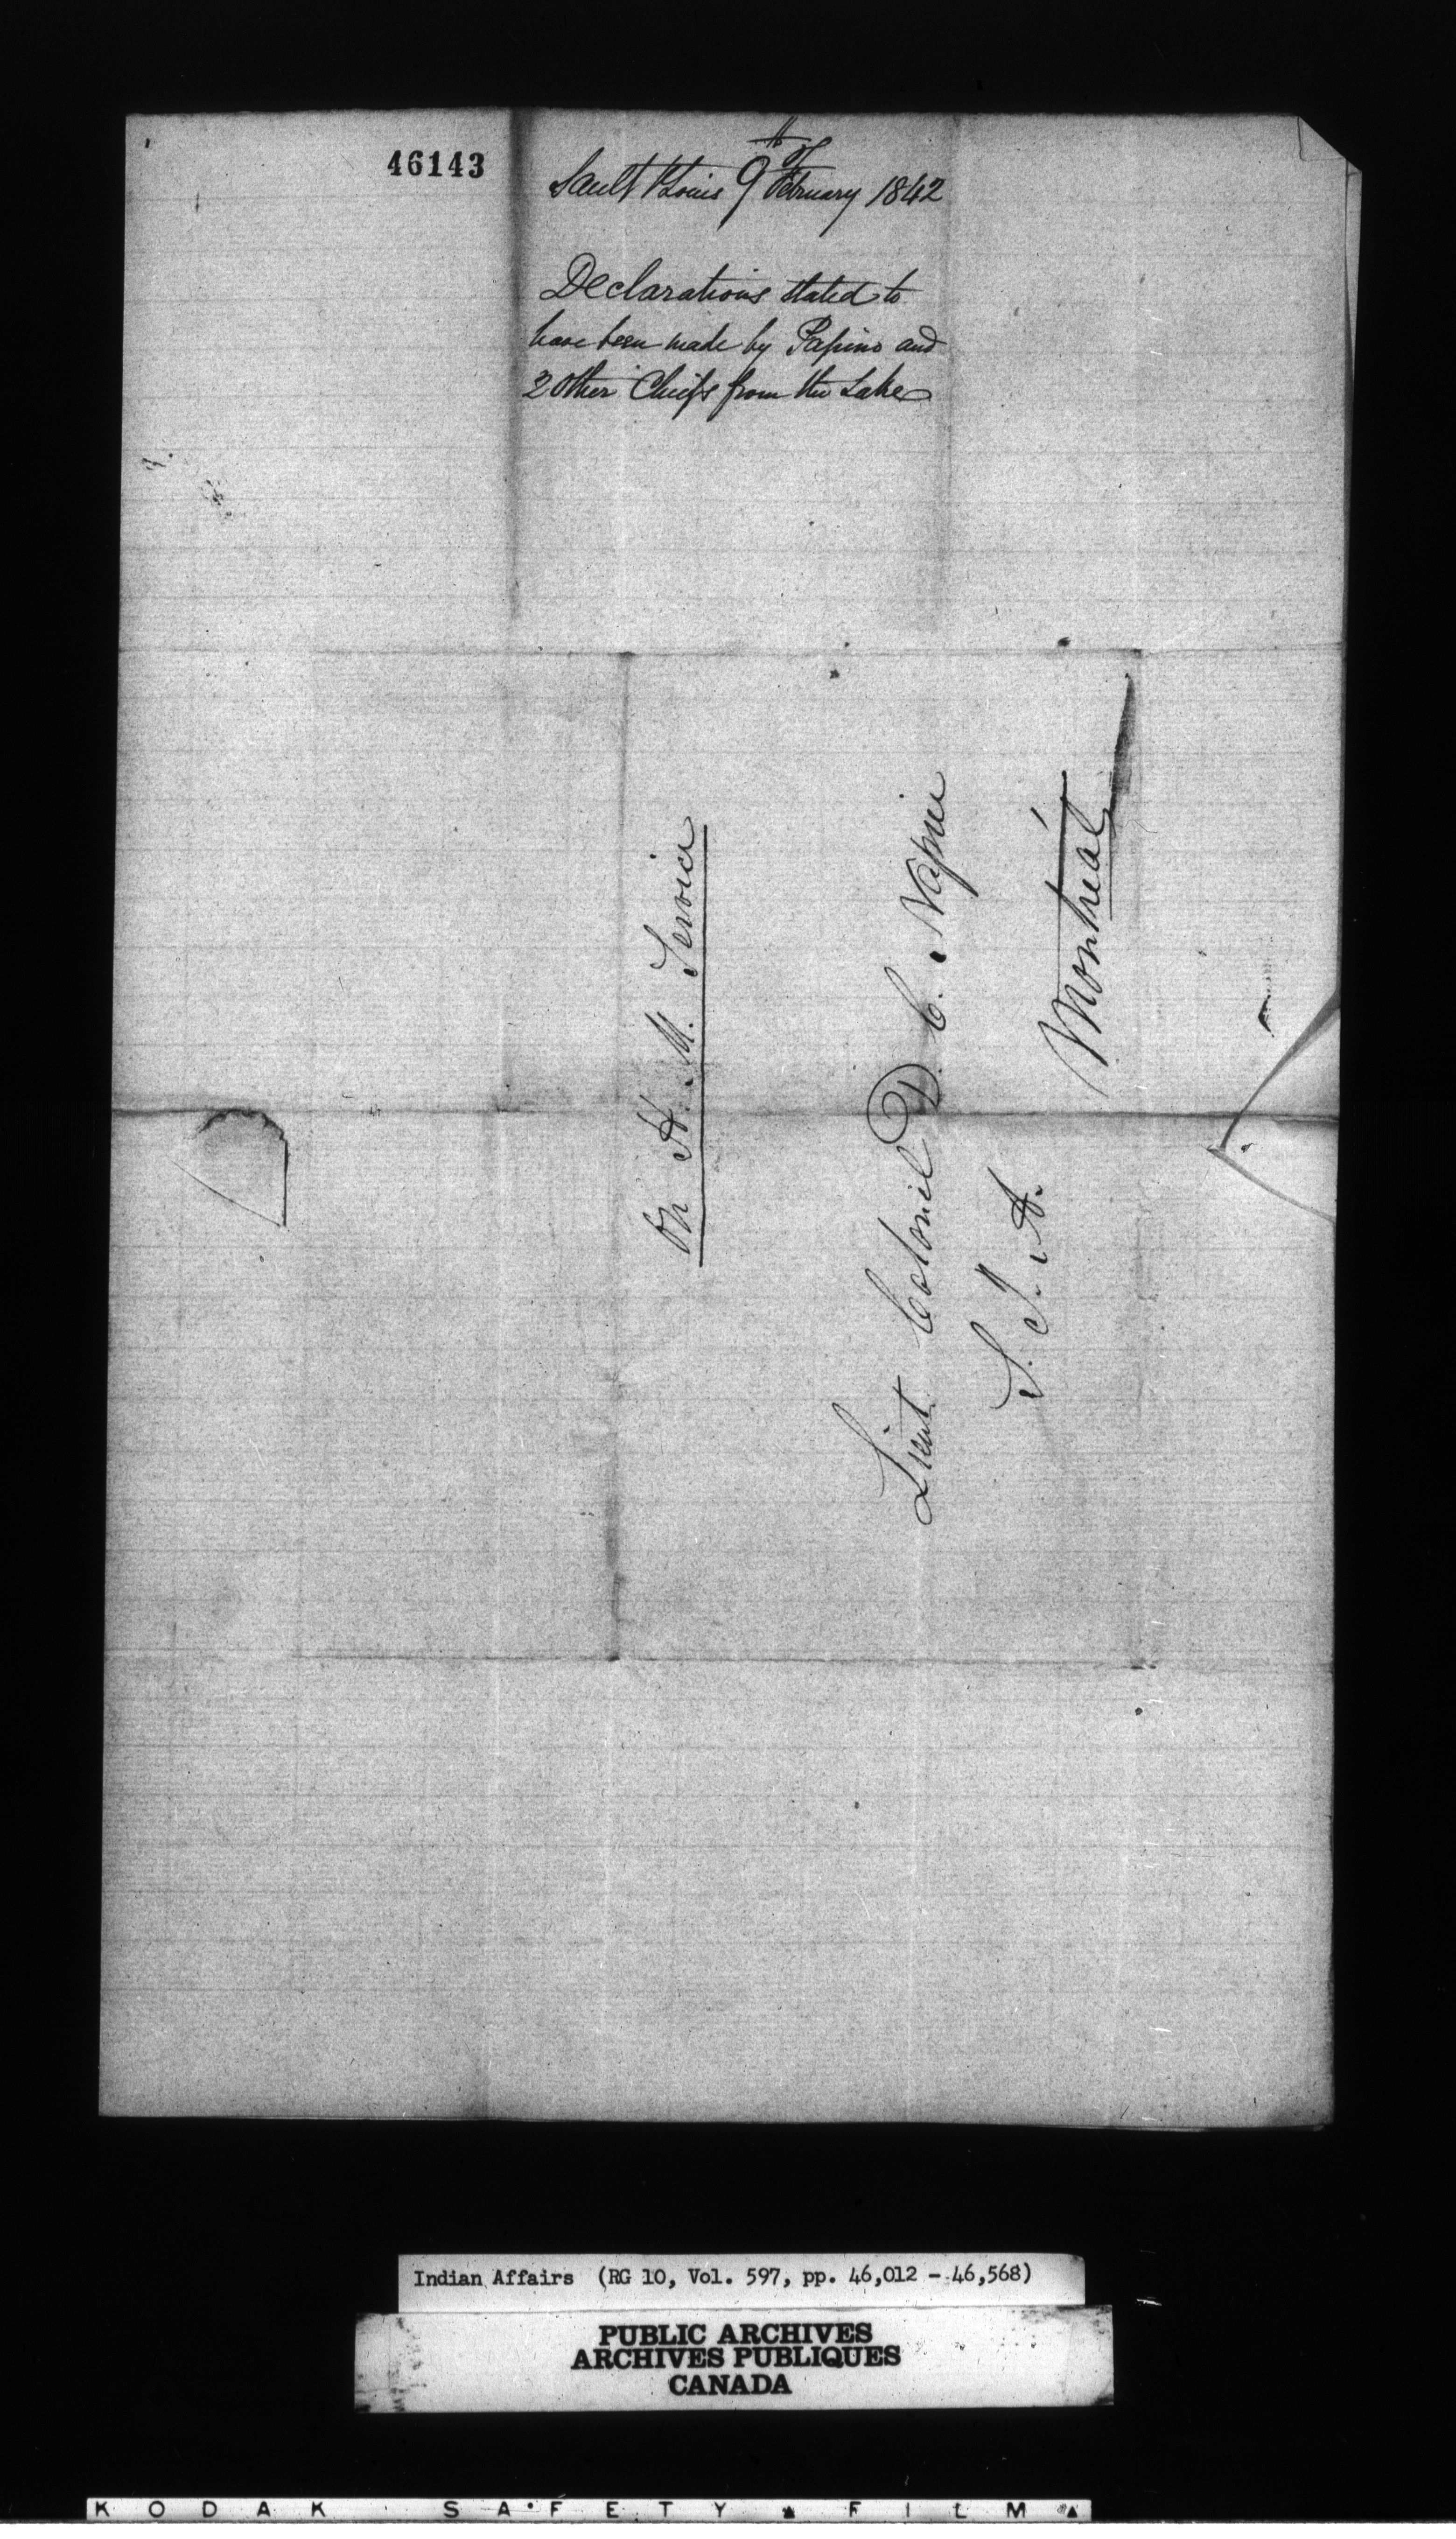 46143
Sault St Louis 9th of February 1842
Declarations stated to
have been made by Papino and
2 other Chiefs from the Lake
On H. M. Service
Lieut Colonel D. C. Napier
S. I. A.
Montreal
Indian Affairs (RG 10, Vol. 597, pp. 46,012 - 46,568)
PUBLIC ARCHIVES
ARCHIVES PUBLIQUES
CANADA
KODAK SAFETY FILM